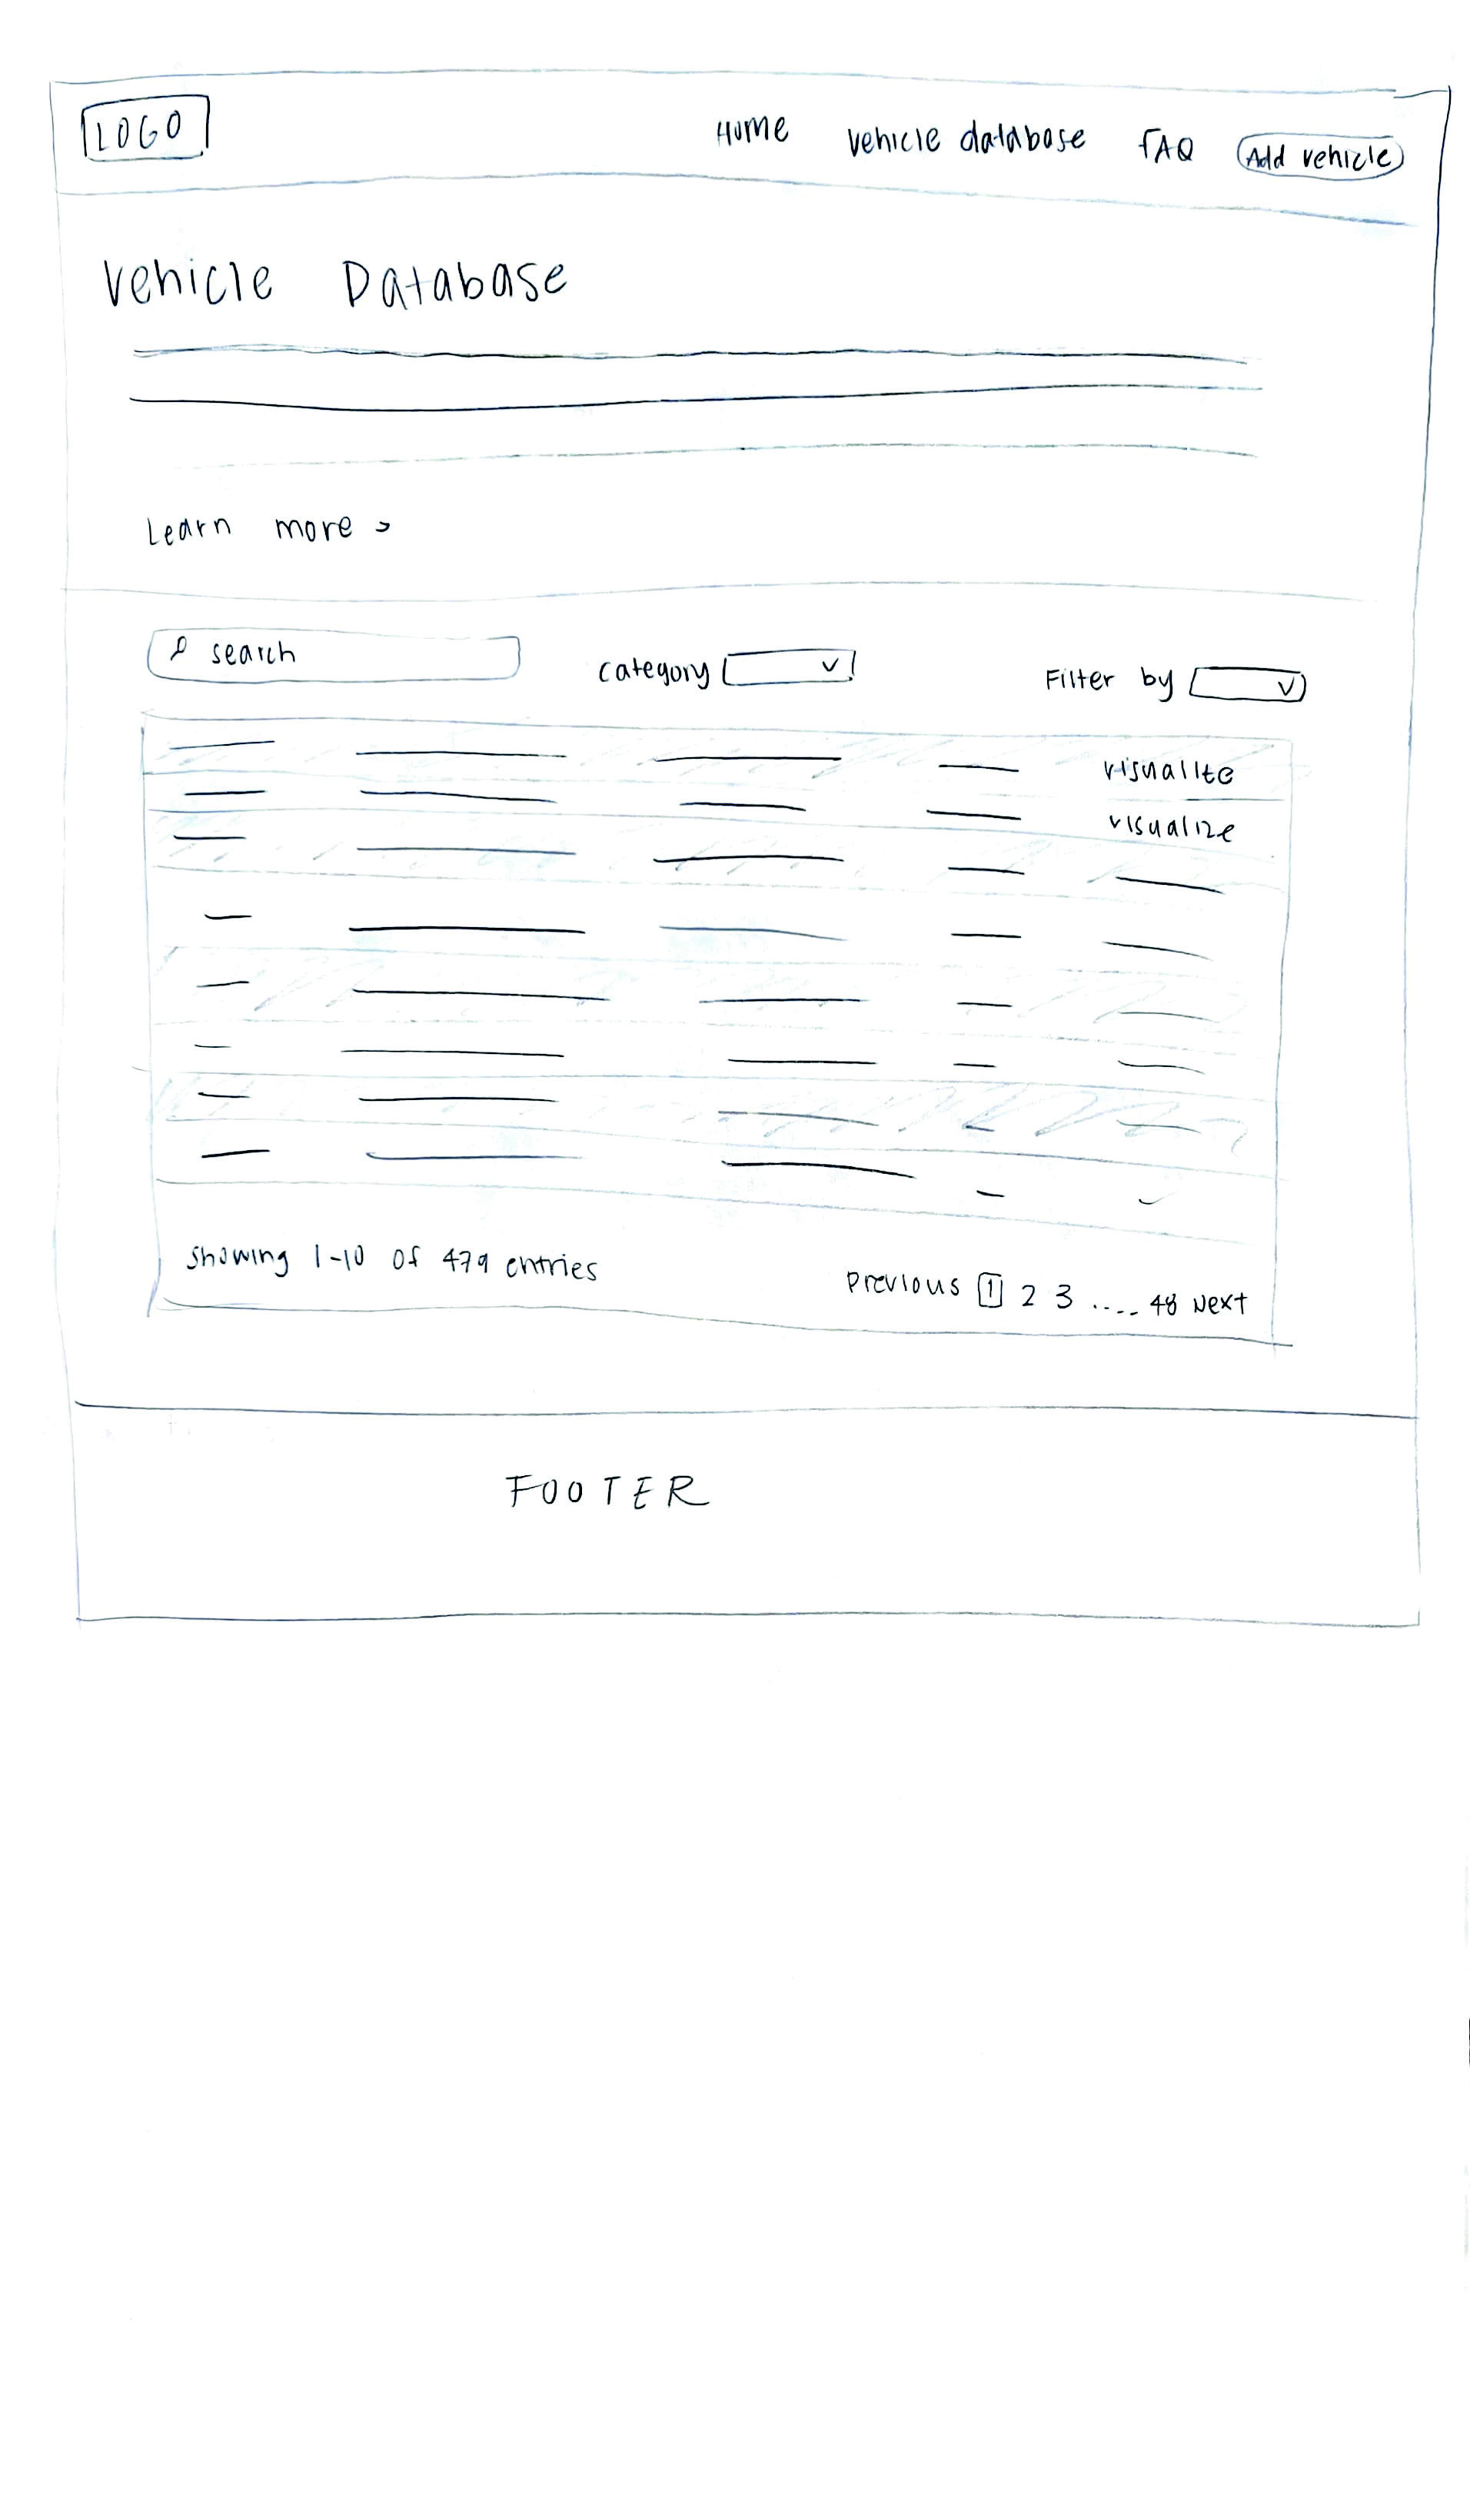 LOGO
Home vehicle database FAQ Add vehicle
Vehicle Database
Learn more >
search category Filter by
visualize
visualize
showing 1-10 of 479 entries
Previous 1 2 3 .... 48 Next
FOOTER